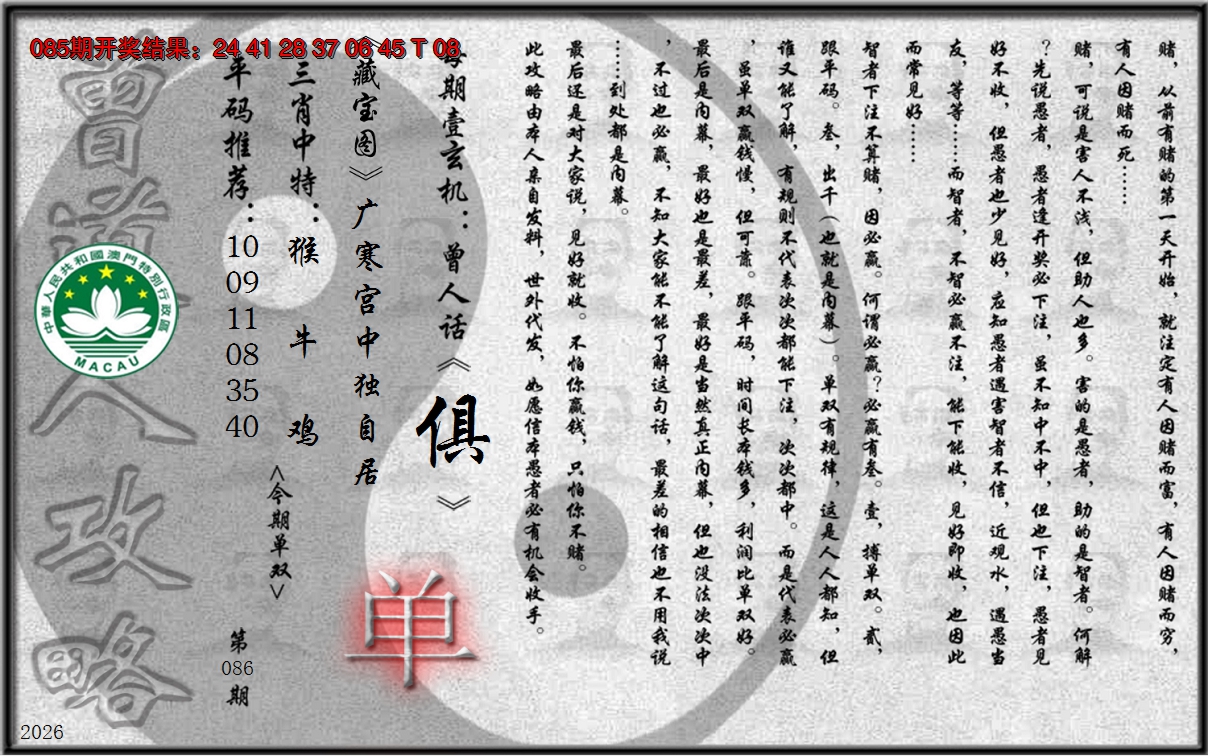 085期开奖结果：24 41 28 37 06 45 T 08
赌，从前有赌的第一天开始，就注定有人因赌而富，有人因赌而穷，
有人因赌而死……
赌，可说是害人不浅，但助人也多。害的是愚者，助的是智者。何解
？先说愚者，愚者逢开奖必下注，虽不知中不中，但也下注，愚者见
好不收，但愚者也少见好，应知愚者遇害智者不信，近观水，遇愚当
友，等等……而智者，不智必赢不注，能下能收，见好即收，也因此
而常见好……
智者下注不算赌，因必赢。何谓必赢？必赢有叁。壹，搏单双。贰，
跟平码。叁，出千（也就是内幕）。单双有规律，这是人人都知，但
谁又能了解，有规则不代表次次都能下注，次次都中。而是代表必赢
，虽单双赢钱慢，但可靠。跟平码，时间长本钱多，利润比单双好。
最后是内幕，最好也是最差，最好是当然真正内幕，但也没法次次中
，不过也必赢，不知大家能不能了解这句话，最差的相信也不用我说
……到处都是内幕。
最后还是对大家说，见好就收。不怕你赢钱，只怕你不赌。
此攻略由本人亲自发料，世外代发，如愿信本愚者必有机会收手。
每期壹玄机：曾人话《俱》
《藏宝图》广寒宫中独自居
单
三肖中特：猴 牛 鸡
<今期单双>
平码推荐：10 09 11 08 35 40
第086期
曾道人攻略
中華人民共和國澳門特別行政區
MACAU
2026